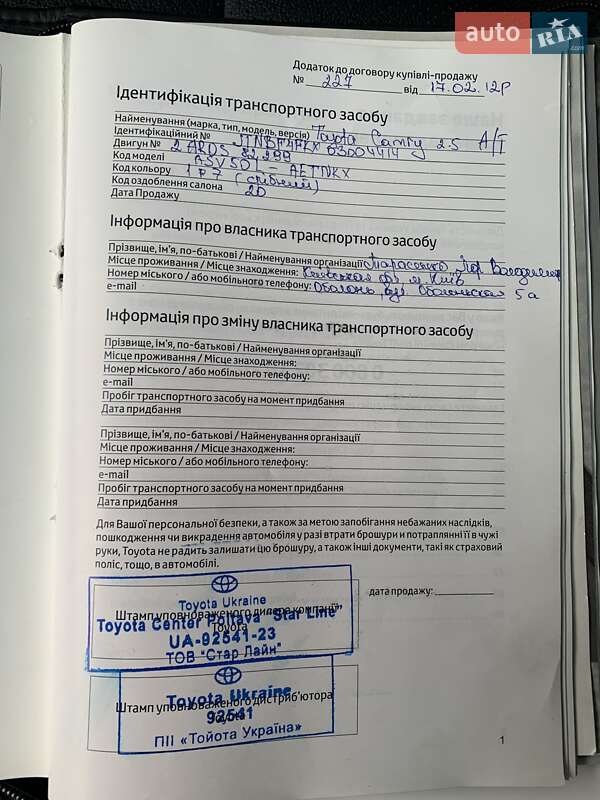 auto RIA.com
Додаток до договору купівлі-продажу
№ 227 від 17.02.12р
Ідентифікація транспортного засобу
Найменування (марка, тип, модель, версія) Toyota Camry 2.5 A/T
Ідентифікаційний № JTNBF4FKX03004414
Двигун № 2ARD532299
Код моделі ASV50L-AETNKX
Код кольору 1F7 (срібний)
Код оздоблення салона 20
Дата Продажу
Інформація про власника транспортного засобу
Прізвище, ім'я, по-батькові / Найменування організації Тарасенко
Місце проживання / Місце знаходження: м Київ
Номер міського / або мобільного телефону: Оболонь, вул. Оболонская 5а
e-mail
Інформація про зміну власника транспортного засобу
Прізвище, ім'я, по-батькові / Найменування організації
Місце проживання / Місце знаходження:
Номер міського / або мобільного телефону:
e-mail
Пробіг транспортного засобу на момент придбання
Дата придбання
Прізвище, ім'я, по-батькові / Найменування організації
Місце проживання / Місце знаходження:
Номер міського / або мобільного телефону:
e-mail
Пробіг транспортного засобу на момент придбання
Дата придбання
Для Вашої персональної безпеки, а також за метою запобігання небажаних наслідків,
пошкодження чи викрадення автомобіля у разі втрати брошури и потраплянні її в чужі
руки, Toyota не радить залишати цю брошуру, а також інші документи, такі як страховий
поліс, тощо, в автомобілі.
дата продажу:
Toyota Ukraine
Штамп уповноваженого дилера компанії
Toyota Center Poltava "Star Line"
Toyota
UA-92541-23
ТОВ "Стар Лайн"
Toyota Ukraine
Штамп уповноваженого дистриб'ютора
92541
Toyota
ПІІ «Тойота Україна»
1